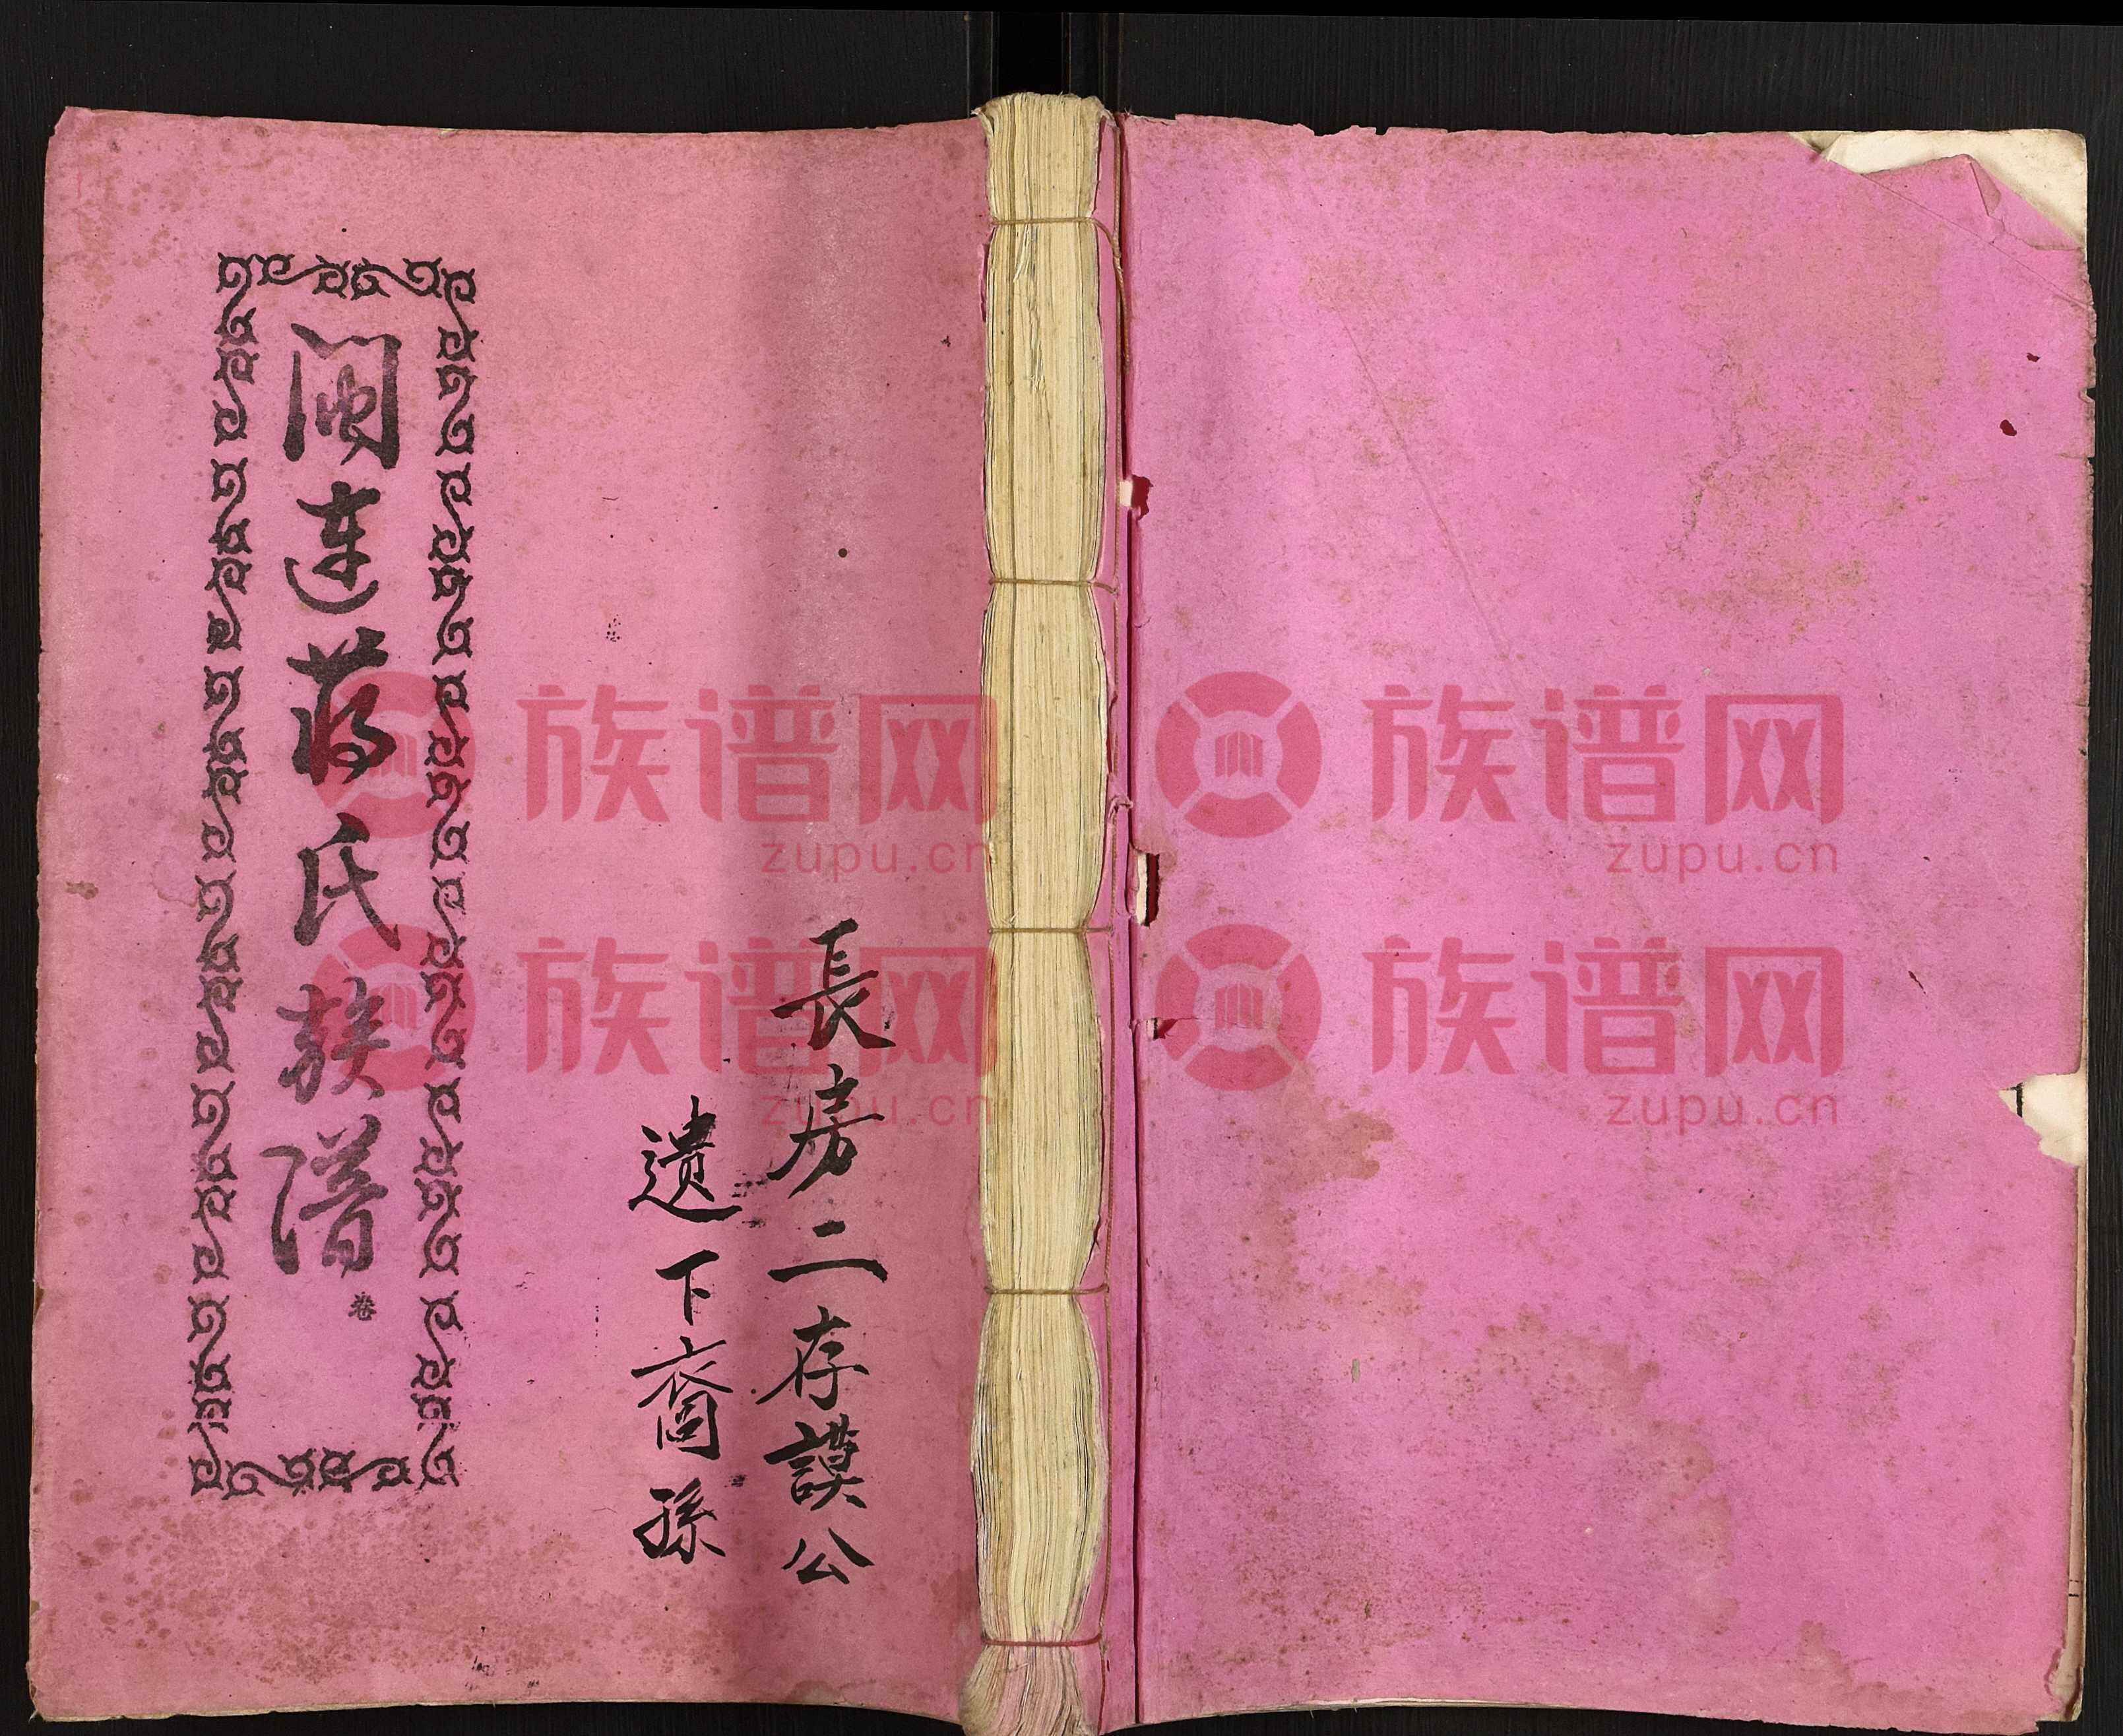 長房二存謨公
遺下裔孫
閩連蒋氏族譜
卷
族谱网
zupu.cn
族谱网
zupu.cn
族谱网
zupu.cn
族谱网
zupu.cn